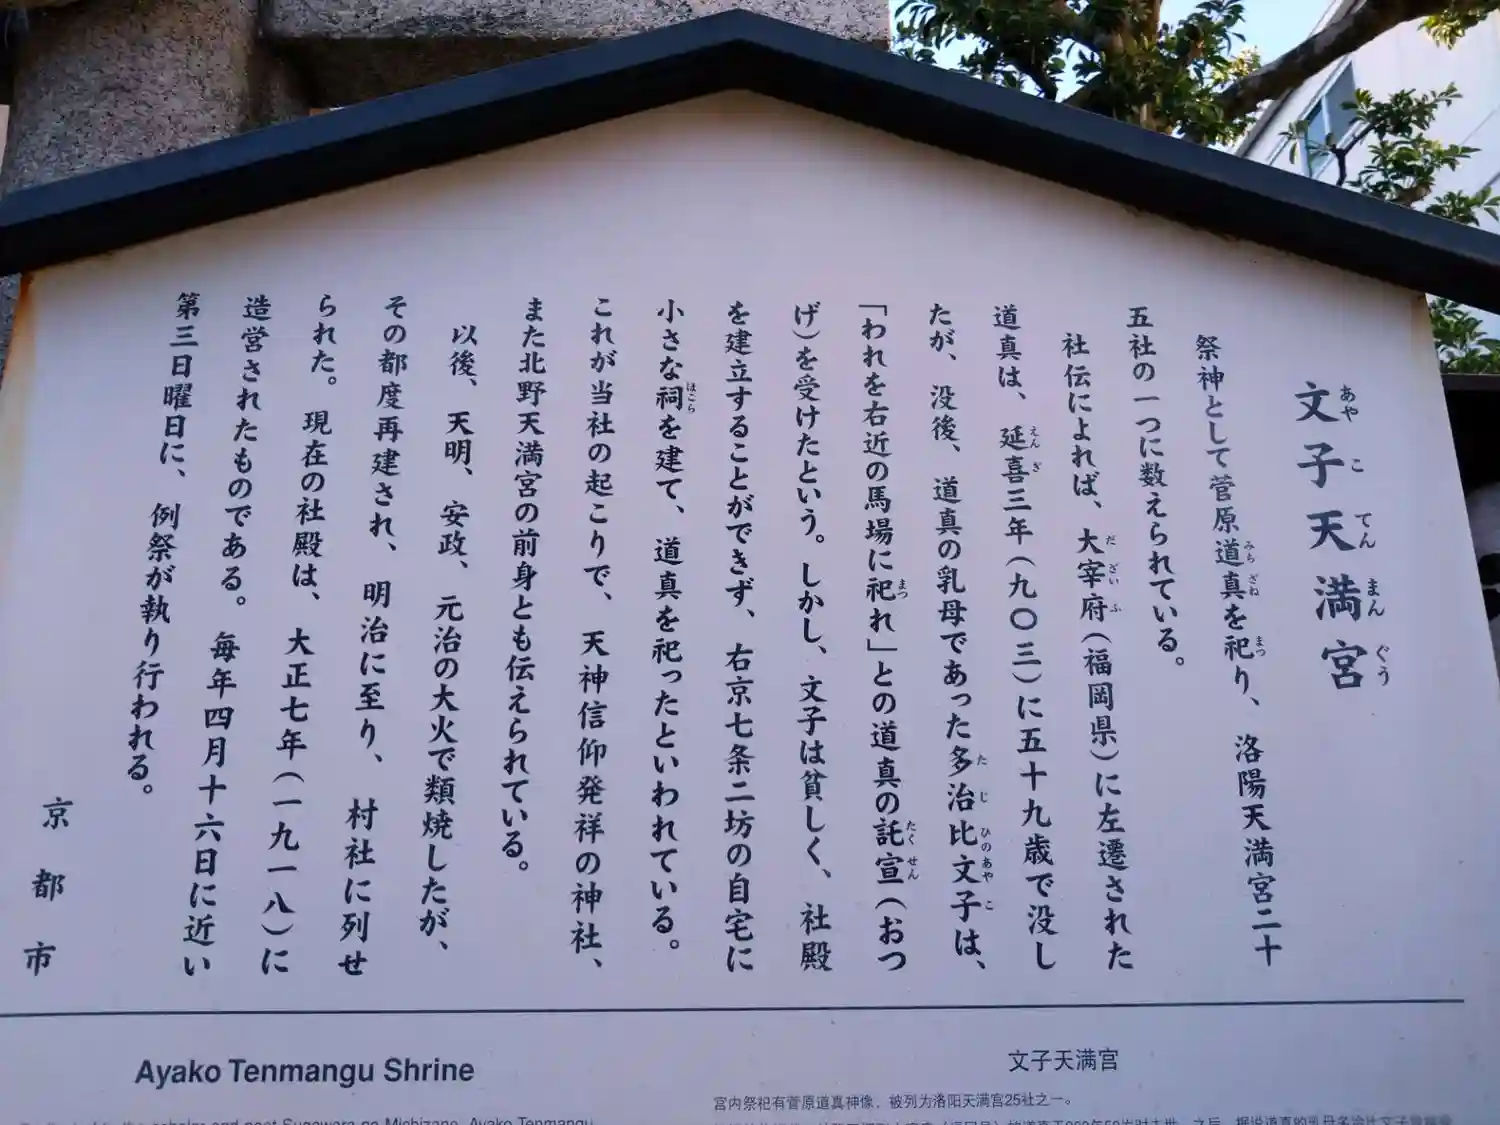 文子天満宮
あやこてんまんぐう
祭神として菅原道真を祀り、洛陽天満宮二十
みちざね
まつ
五社の一つに数えられている。
社伝によれば、大宰府（福岡県）に左遷された
だざいふ
道真は、延喜三年（九〇三）に五十九歳で没し
えんぎ
たが、没後、道真の乳母であった多治比文子は、
たじひのあやこ
「われを右近の馬場に祀れ」との道真の託宣（おつ
まつ
たくせん
げ）を受けたという。しかし、文子は貧しく、社殿
を建立することができず、右京七条二坊の自宅に
小さな祠を建て、道真を祀ったといわれている。
ほこら
これが当社の起こりで、天神信仰発祥の神社、
また北野天満宮の前身とも伝えられている。
以後、天明、安政、元治の大火で類焼したが、
その都度再建され、明治に至り、村社に列せ
られた。現在の社殿は、大正七年（一九一八）に
造営されたものである。毎年四月十六日に近い
第三日曜日に、例祭が執り行われる。
京都市
Ayako Tenmangu Shrine
文子天满宫
宫内祭祀有菅原道真神像，被列为洛阳天满宫25社之一。